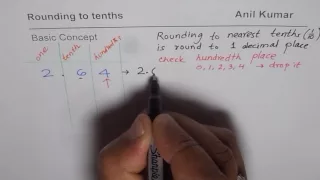 Rounding to tenths Anil Kumar
Basic Concept
Rounding to nearest tenths (1b)
is round to 1 decimal place
check hundredth place
0, 1, 2, 3, 4 → drop it
one tenth hundredths
2 . 6 4 → 2.
↑